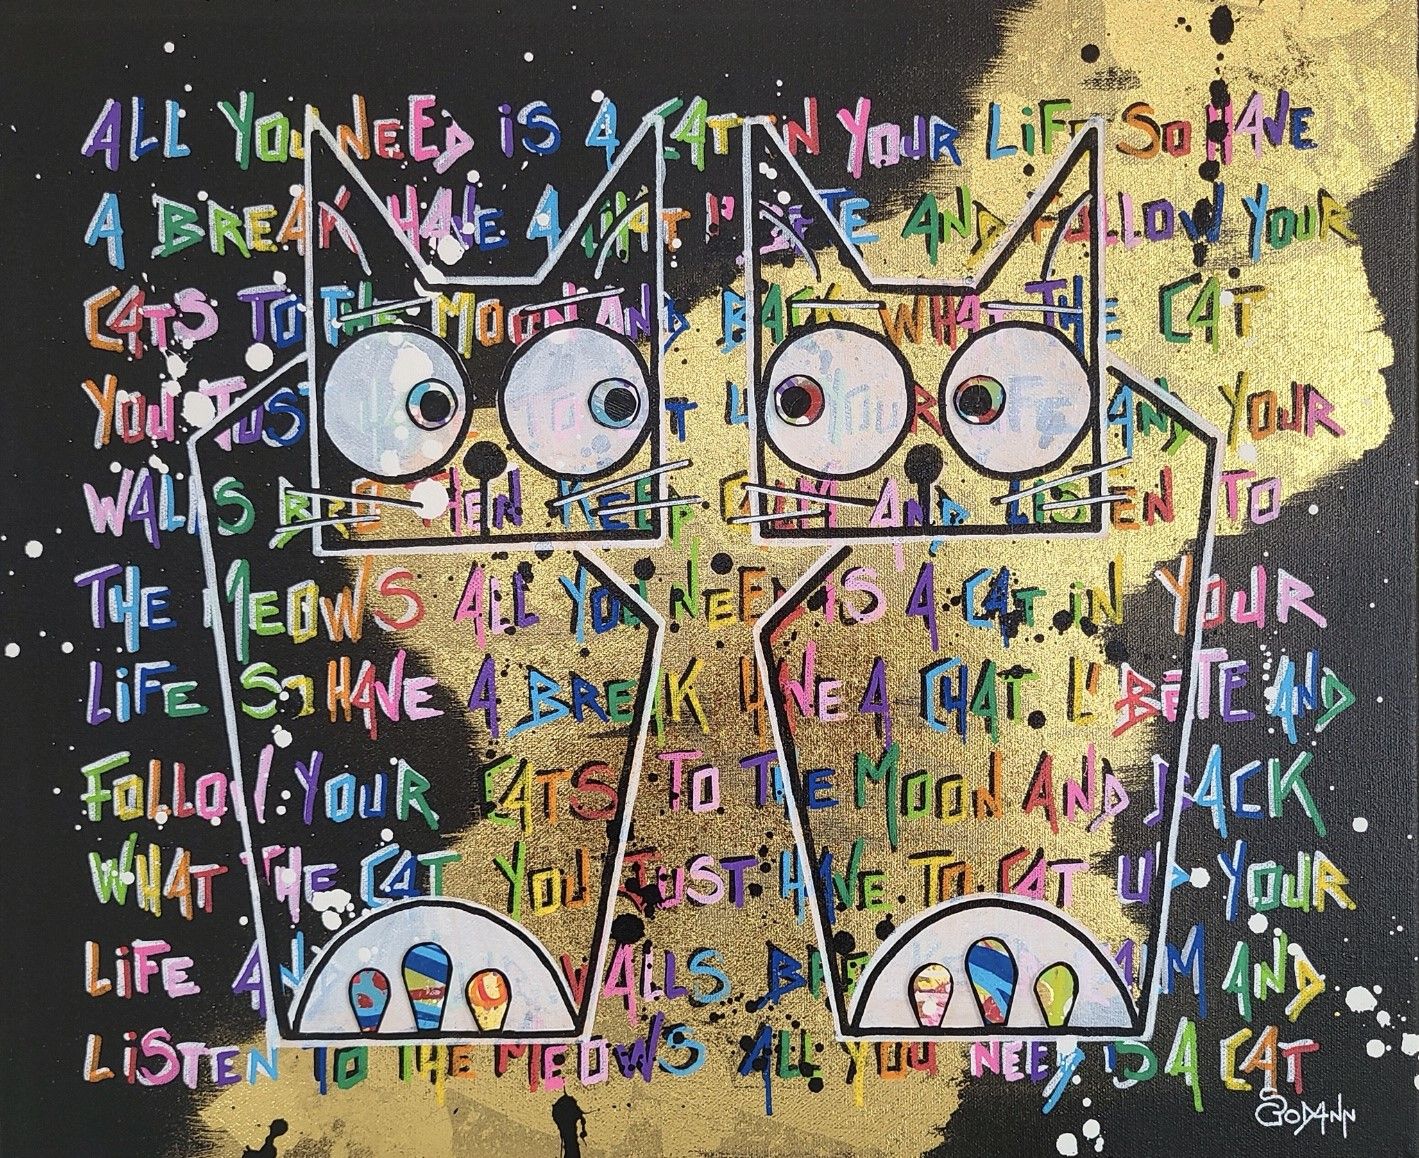 ALL YOU NEED iS A CAT iN YOUR LiFE SO HAVE
A BREAK HAVE A CHAT L' BÊTE AND FOLLOW YOUR
CATS TO THE MOON AND BACK WHAT THE CAT
YOU JUST TO CAT YOUR LIFE AND YOUR
WALLS BRO THEN KEEP CALM AND LISTEN TO
THE MEOWS ALL YOU NEED iS A CAT iN YOUR
LiFE SO HAVE A BREAK HAVE A CHAT. L' BÊTE AND
FOLLOW YOUR CATS TO THE MOON AND BACK
WHAT THE CAT YOU JUST HAVE TO CAT UP YOUR
LiFE AND WALLS BRO CALM AND
LiSTEN TO THE MEOWS ALL YOU NEED iS A CAT
GODANN